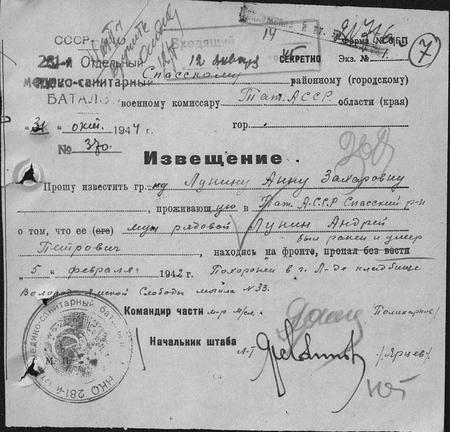 СССР-НКО
281-й Отдельный
медико-санитарный
БАТАЛЬОН
Входящий
12 января 45
14
СЕКРЕТНО
Форма №
Экз. № 1.
7
Спасскому районному (городскому)
военному комиссару Тат. АССР. области (края)
"31" окт. 1944 г.
гор.
№ 370.
Извещение
Прошу известить гр-ку Лунину Анну Захаровну
, проживающую в Тат. АССР Спасский р-н
о том, что ее (его) муж рядовой Лунин Андрей
Петрович, находясь на фронте, пропал без вести
был ранен и умер
"5" февраля 1942 г. Похоронен в г. Л-де кладбище
Володарской Слободы могила № 33.
Командир части м-р м/сл. Поликарпов
Начальник штаба Л-т /Ярцев/
медико-санитарный бат
НКО 281-й